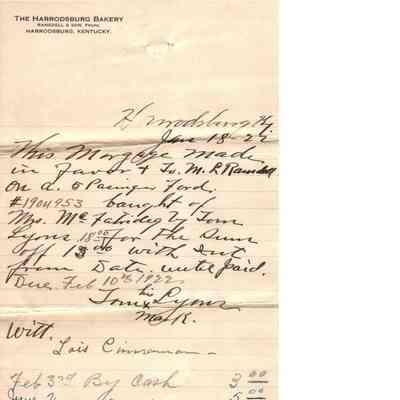 THE HARRODSBURG BAKERY
RANSDELL & SON, PROPS.
HARRODSBURG, KENTUCKY.
Harrodsburg Ky
Jan 18-22
This Morgage made
in Favor & To. M. R Ransdell
on a. 5 Pasinger Ford.
#1904953 baught of
Mrs. Mc by Tom
Lyons 18.00 for the Sum
off 13.00 with Int
from Date until paid.
Due Feb 10th 1922
his
Tom x Lyons
Mark.
Witt.
Lois
Feb 3rd By Cash 3 00
5 00